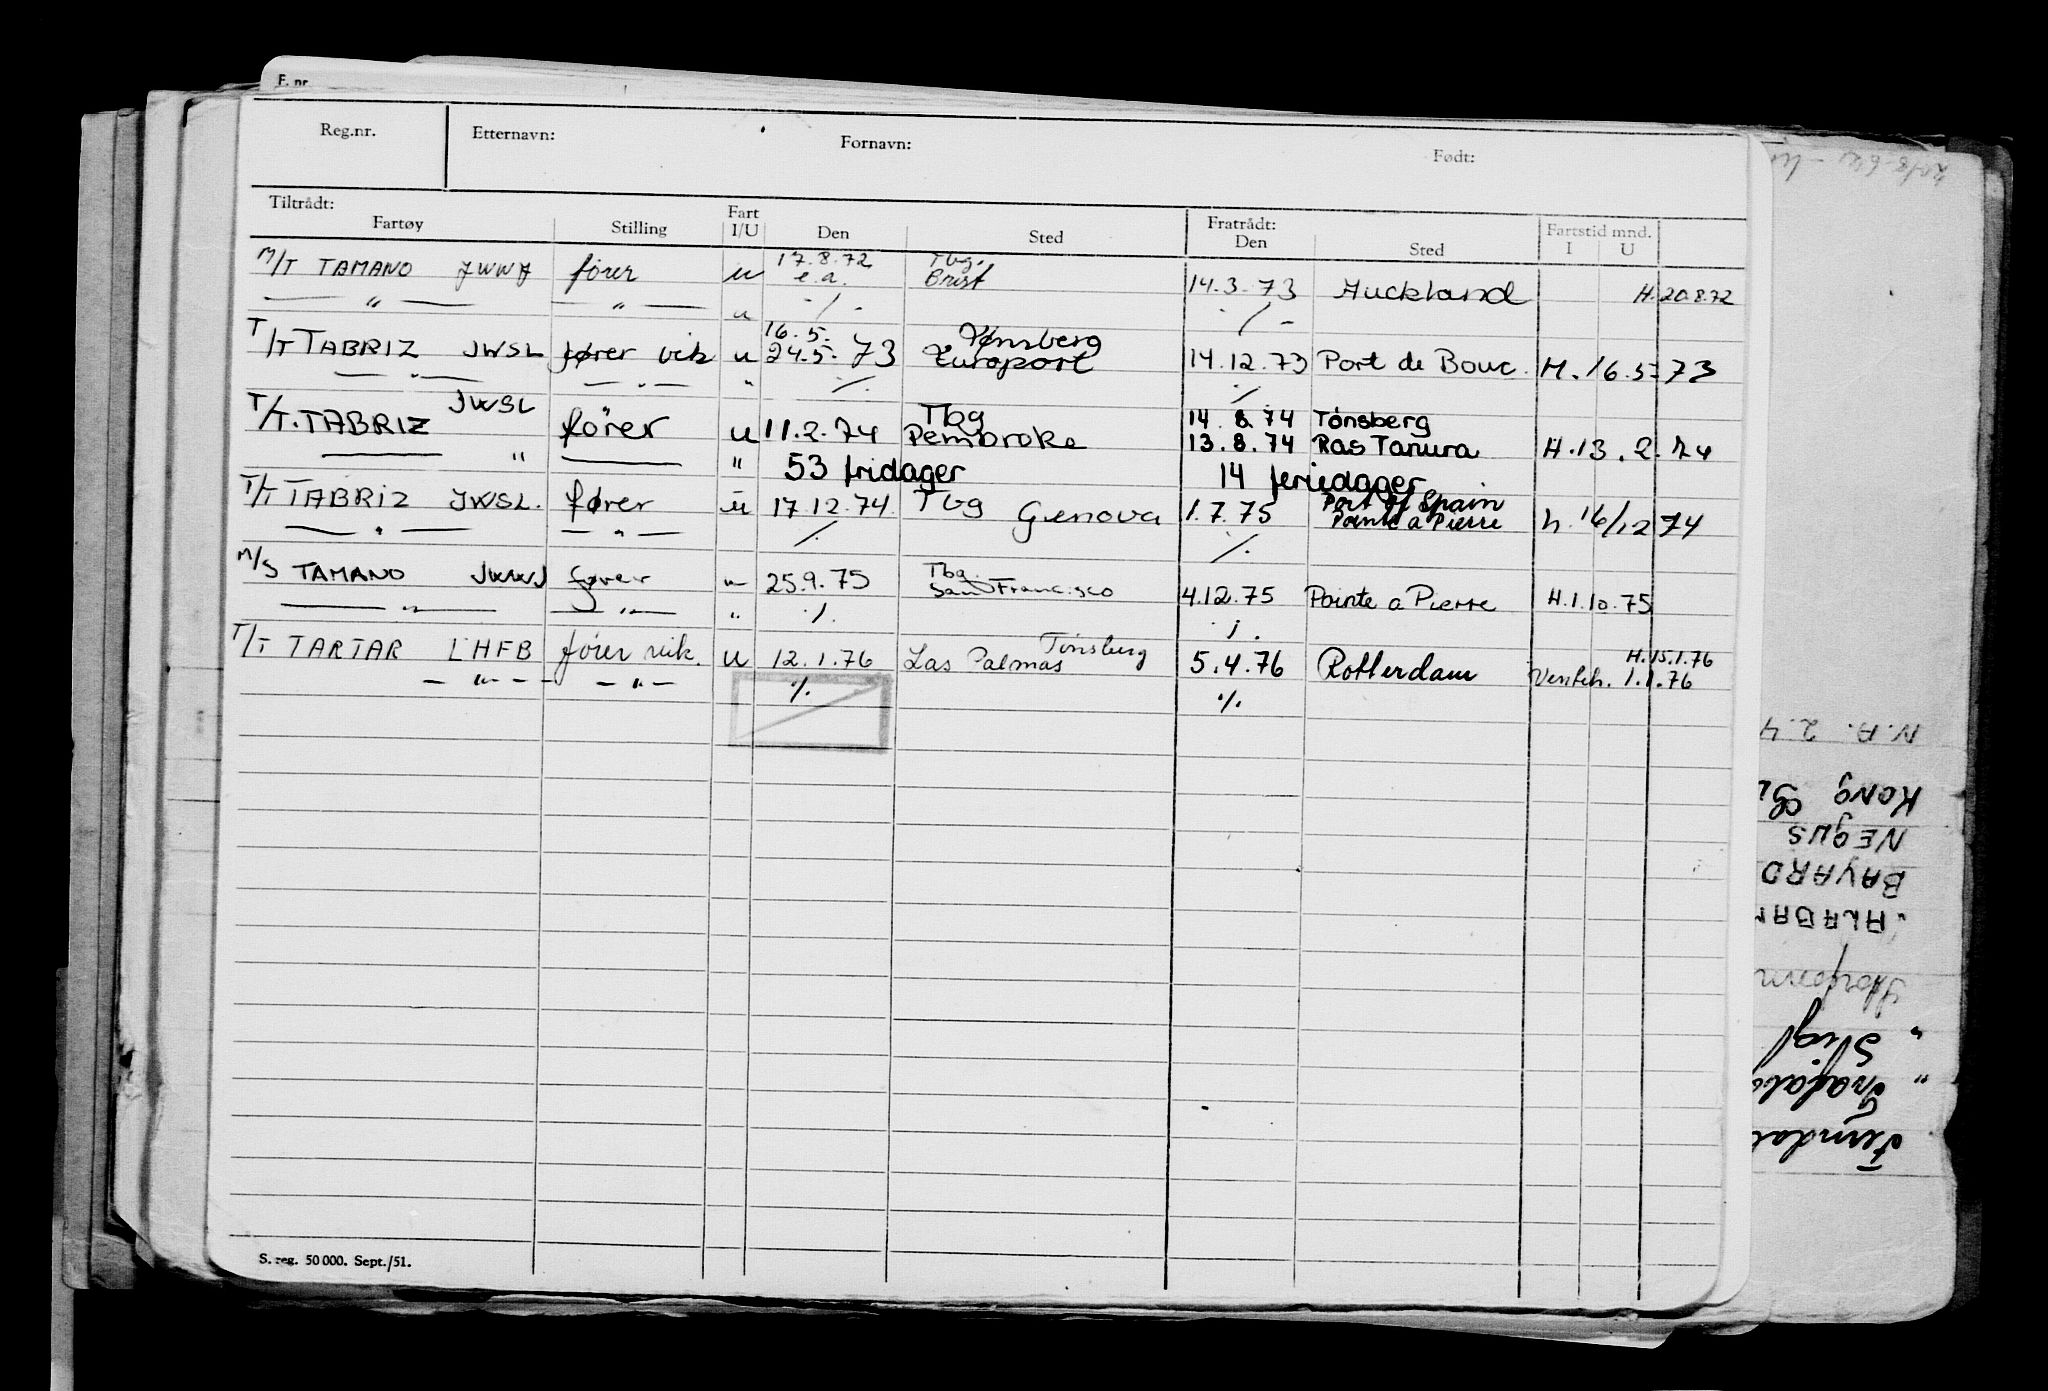 F. nr.
Reg.nr. Etternavn: Fornavn: Født:
Tiltrådt: Fratrådt: Fartstid mnd.
Fartøy Stilling Fart I/U Den Sted Den Sted I U
17.8.72 Tbg.
M/T TAMANO JWWJ fører u e.a. Brest 14.3.73 Auckland H. 20.8.72
— " — — " — u ./. ./.
16.5. Tønsberg
T/T TABRIZ JWSL fører vik u 24.5.73 Europort 14.12.73 Port de Bouc. H. 16.5.73
— " — — " — " ./. ./.
JWSL Tbg 14.8.74 Tønsberg
T/T. TABRIZ fører u 11.2.74 Pembroke 13.8.74 Ras Tanura H.13.2.74
— " — " 53 fridager 14 feriedager
Port of Spain
T/T TABRIZ JWSL. fører u 17.12.74 Tbg Genova 1.7.75 Pointe a Pierre h. 16/12 74
— " — — " — ./. ./.
Tbg.
M/S TAMANO JWWJ fører u 25.9.75 San Francisco 4.12.75 Pointe a Pierre H.1.10.75
— " — — " — " ./. ./.
Tønsberg H.15.1.76
T/T TARTAR LHFB fører vik. u 12.1.76 Las Palmas 5.4.76 Rotterdam Venteh. 1.1.76
— " — — " — ./. ./.
S. reg. 50 000. Sept./51.
N.A. 2.4
KONG
NEGUS
BAYARD